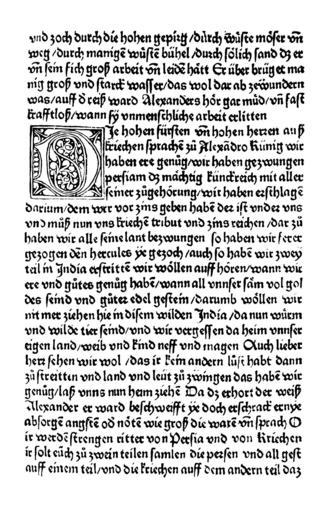 vnd zoch durch die hohen gepirg/durch wüste möser vñ
weg/durch manigen wüsten bühel/durch sölich sand dz er
vñ sein sich groß arbeit vñ leidē hätt Er über brüg et ma
nig groß vnd starck wasser/das wol dar ab zewundern
was/auff d reiß ward Alexanders hör gar müd/vñ fast
krafftloß/wann sy vnmenschlich arbeit erlitten
Die hohen fürsten vñ hohen herren auß
kriechen sprachē zů Alexādro Künig wir
haben ere genůg/wir haben gezwungen
persiam dz mächtig künckreich mit aller
seiner zůgehörung/wir haben erschlagē
darium/dem wir vor zins geben habē der ist vnder vns
vnd můß nun vns kriechē tribut vnd zins reichen/dar zů
haben wir alle seine lant bezwungen so haben wir ferer
gezogen dēn hercules ye gezoch/auch so habē wir zwey
teil in India erstrittē wir wöllen auff hören/wann wir
ere vnd gůtes genůg habē/wann all vnnser säm vol gol
des seind vnd gůter edel gestein/darumb wöllen wir
nit mer ziehen hie in disem wilden India/da nun würm
vnd wilde tier seind/vnd wir vergessen da heim vnnser
eigen land/weib vnd kind neff vnd magen Auch lieber
herr sehen wir wol/das ir kein andern lüst habt dann
zů streitten vnd land vnd leüt zů zwingen das habē wir
genůg/laß vnns nun heim ziehē Da dz erhort der weiß
Alexander er ward beschweifft ye doch erschrack er nye
absorgē angsten oð nötē wie groß die warē vñ sprach O
ir werdē strengen ritter von Persia vnd von Kriechen
ir solt eüch zů zwein teilen samlen die persen vnd all gest
auff einem teil/vnd die kriechen auff dem andern teil daz